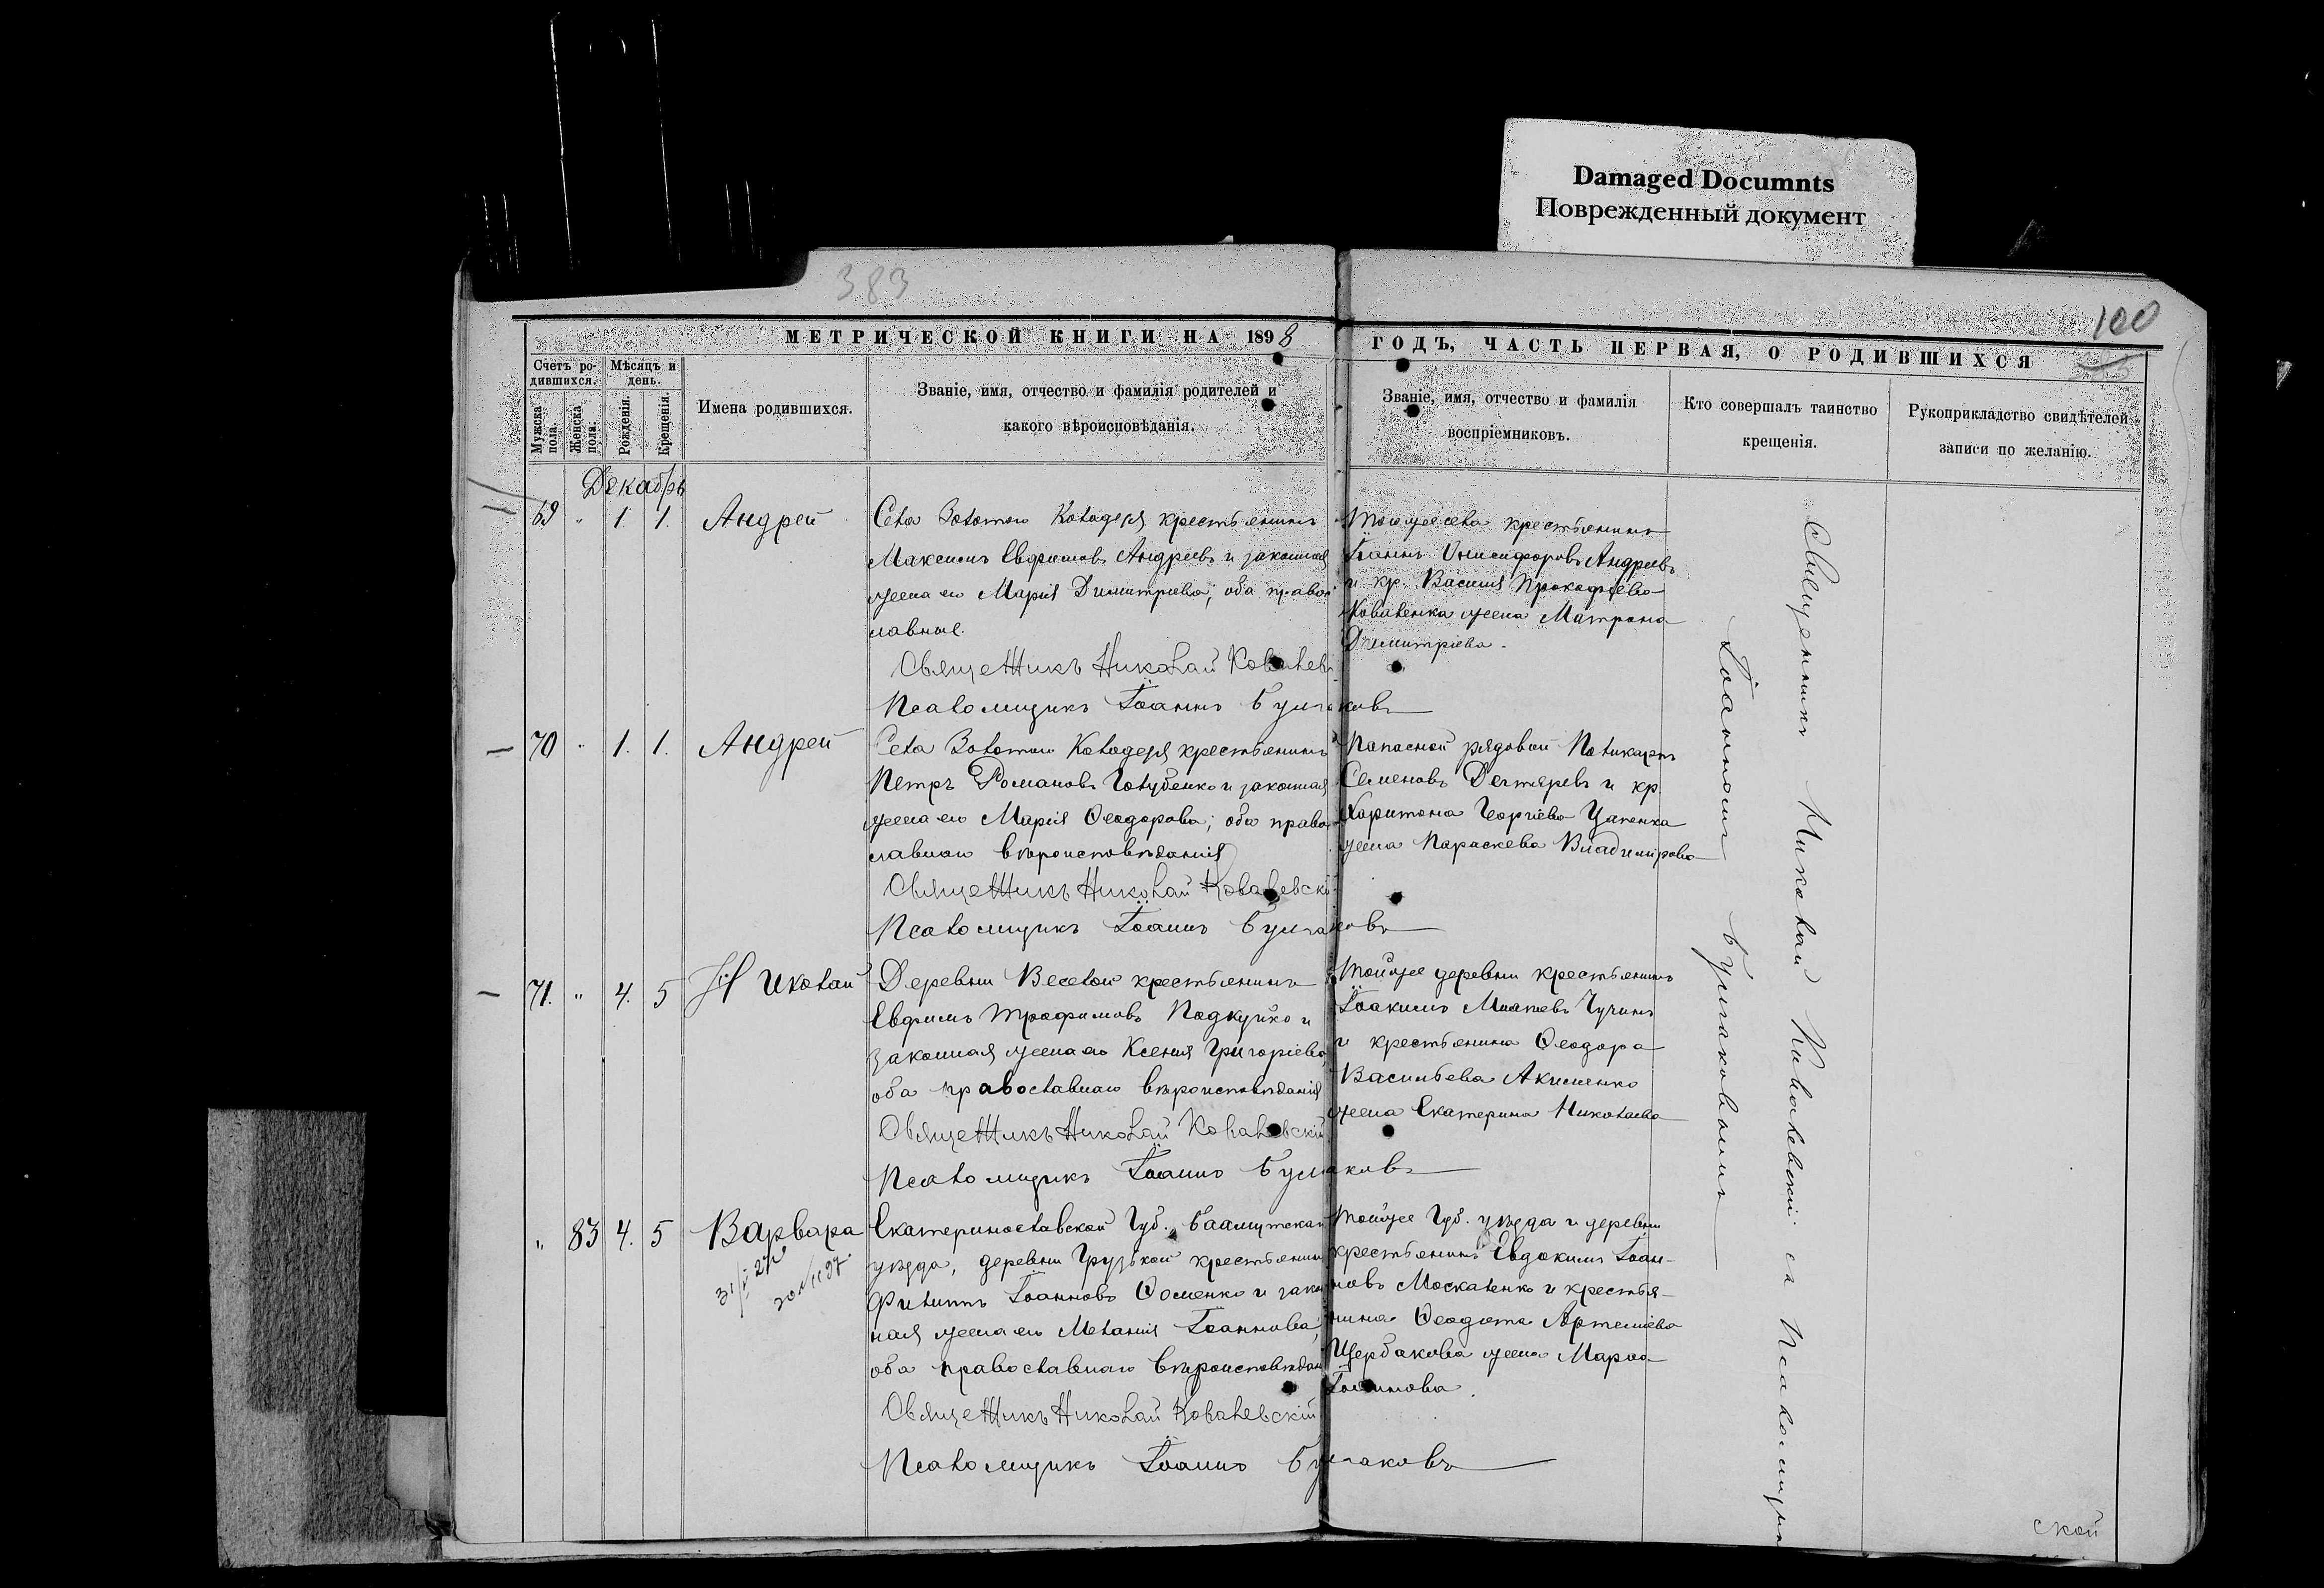 Damaged Documnts
Поврежденный документ
383
100
МЕТРИЧЕСКОЙ КНИГИ НА 1898
ГОДЪ, ЧАСТЬ ПЕРВАЯ, О РОДИВШИХСЯ
Счетъ ро-
дившихся.
Мѣсяцъ и
день.
Мужска
пола.
Женска
пола.
Рожденія.
Крещенія.
Имена родившихся.
Званіе, имя, отчество и фамилія родителей и
какого вѣроисповѣданія.
Званіе, имя, отчество и фамилія
воспріемниковъ.
Кто совершалъ таинство
крещенія.
Рукоприкладство свидѣтелей
записи по желанію.
Декабрь
69 " 1. 1. Андрей
Села Золотой Колодезя крестьянинъ
Максимъ Евфимовъ Андреевъ и законная
жена его Марія Димитріева; оба право
славные.
Священникъ Николай Ковалев
Псаломщикъ Іоаннъ Булгаковъ
Тогоже села крестьянинъ
Іоаннъ Онисифоровъ Андреевъ
и кр. Василія Прокофіева
Коваленка жена Матрона
Димитріева.
70 " 1. 1. Андрей
Села Золотой Колодезя крестьянинъ
Петръ Романовъ Голубенко и законная
жена его Марія Ѳеодорова; оба право
славнаго вѣроисповѣданія
Священникъ Николай Ковалевскі
Псаломщикъ Іоаннъ Булгаковъ
Запасной рядовой Поликарпъ
Семеновъ Дегтяревъ и кр.
Харитона Георгіева Цапенка
жена Параскева Владимірова
71. " 4. 5 Николай
Деревни Веселой крестьянинъ
Евфимъ Трофимовъ и
законная жена его Ксенія Григоріева,
оба православнаго вѣроисповѣданія
Священникъ Николай Ковалевскій
Псаломщикъ Іоаннъ Булгаковъ
Тойже деревни крестьянинъ
Іоакимъ
и крестьянина Ѳеодора
Васильева Акименко
жена Екатерина Николаева
" 83 4. 5 Варвара
Екатеринославской Губ. Бахмутскаго
уѣзда, деревни Грузской крестьянинъ
Филиппъ Іоанновъ Ѳоменко и закон
ная жена его Меланія Іоаннова;
оба православнаго вѣроисповѣдан
Священникъ Николай Ковалевскій
Псаломщикъ Іоаннъ Булгаковъ
Тойже Губ. уѣзда и деревни
крестьянинъ Евдокимъ Іоан-
новъ Москаленко и крестья-
нина Ѳеодота Артеміева
Щербакова жена Марѳа
Священникъ Николай Ковалевскій съ Псаломщи
Іоанномъ Булгаковымъ
ской